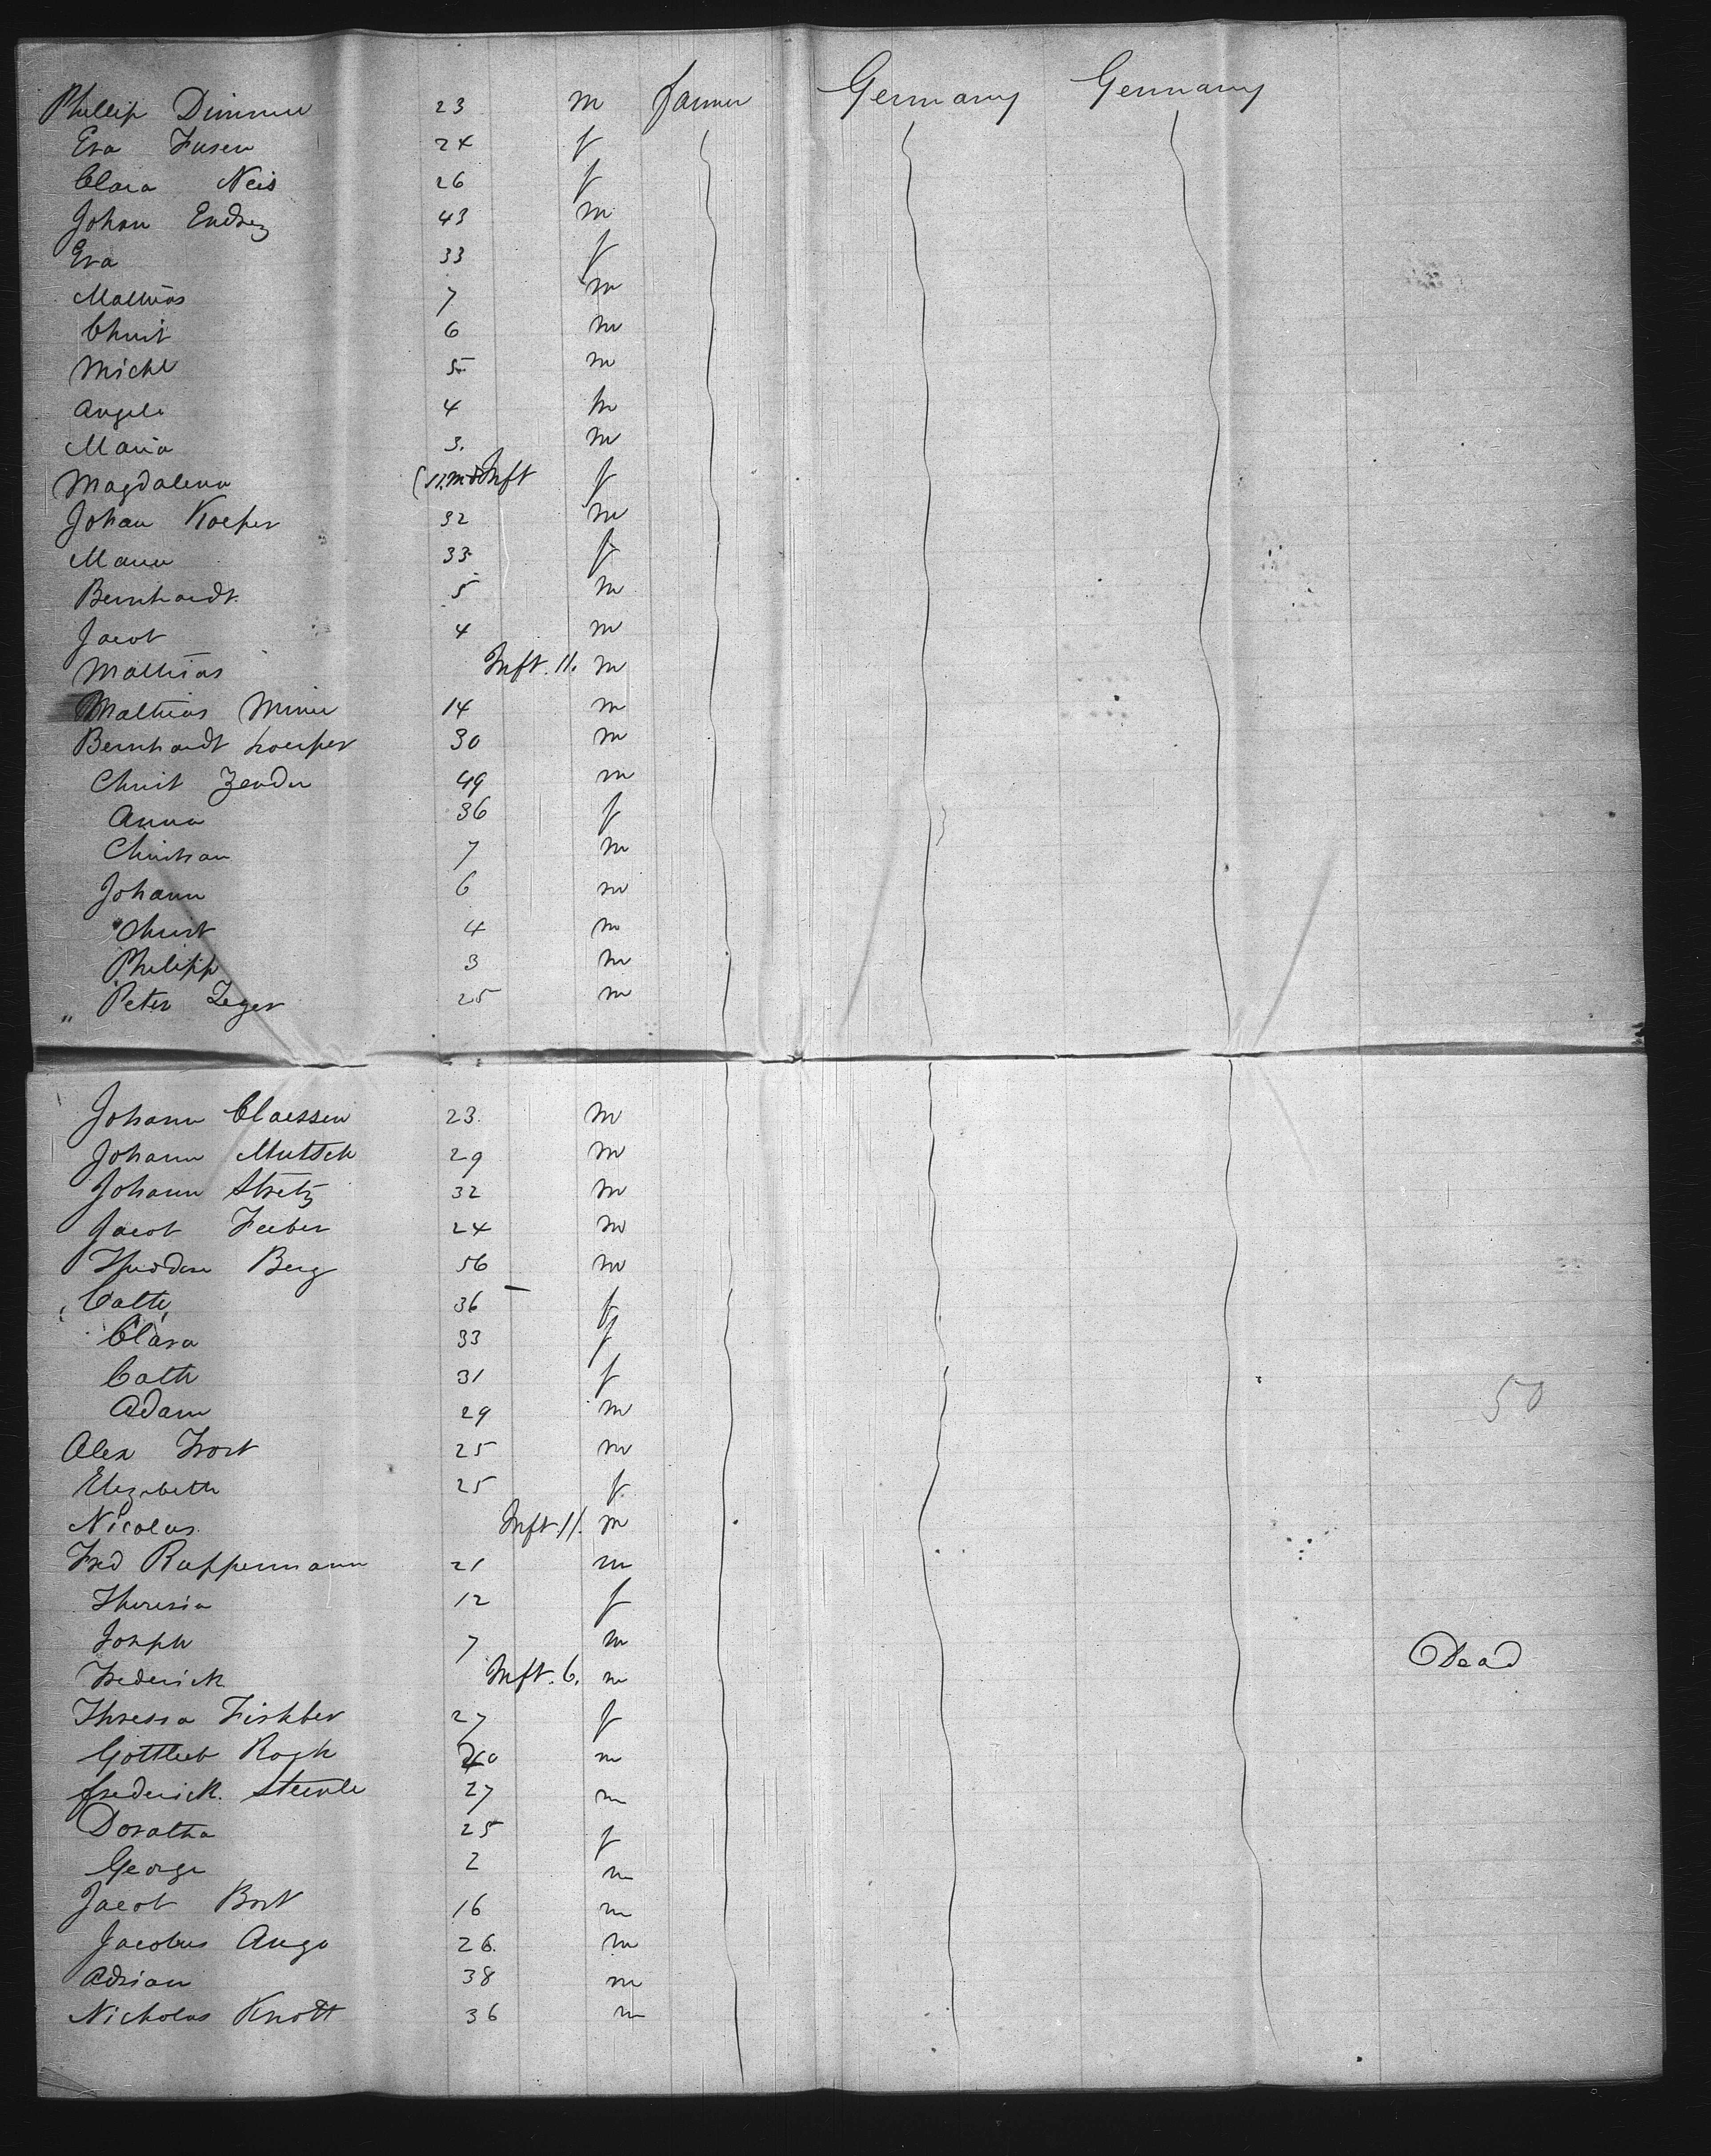 Phillip Dimmer 23 m farmer Germany Germany
Eva Fusen 24 f
Clara Neis 26 f
Johan Endrez 43 m
Eva 33 f
Mathias 7 m
Christ 6 m
Michl 5 m
Angela 4 m
Maria 3. m
Magdalena (11.mo Inft f
Johan Koerper 32 m
Maria 33 f
Bernhardt 5 m
Jacob 4 m
Mathias Inft. 11. m
Mathias 14 m
Bernhardt Koerper 30 m
Christ Zender 49 m
Anna 36 f
Christian 7 m
Johann 6 m
Christ 4 m
Philipp 3 m
" Peter Zeger 25 m
Johann Claessen 23. m
Johann Mutsch 29 m
Johann Stretz 32 m
Jacob Feeber 24 m
Theodore Berg 56 m
Cath 36 f
Clara 33 f
Cath 31 f
Adam 29 m 50
Alex Trost 25 m
Elizabeth 25 f
Nicolas Inft. 11. m
Fred Ruppermann 21 m
Theresia 12 f
Joseph 7 m
Frederick Inft. 6. m Dead
Thressa Fishber 27 f
Gottlieb Rock m
Frederick. Steinle 27 m
Doratha 25 f
George 2 m
Jacob Bort 16 m
Jacobus Ango 26. m
Adrian 38 m
Nicholas Knott 36 m